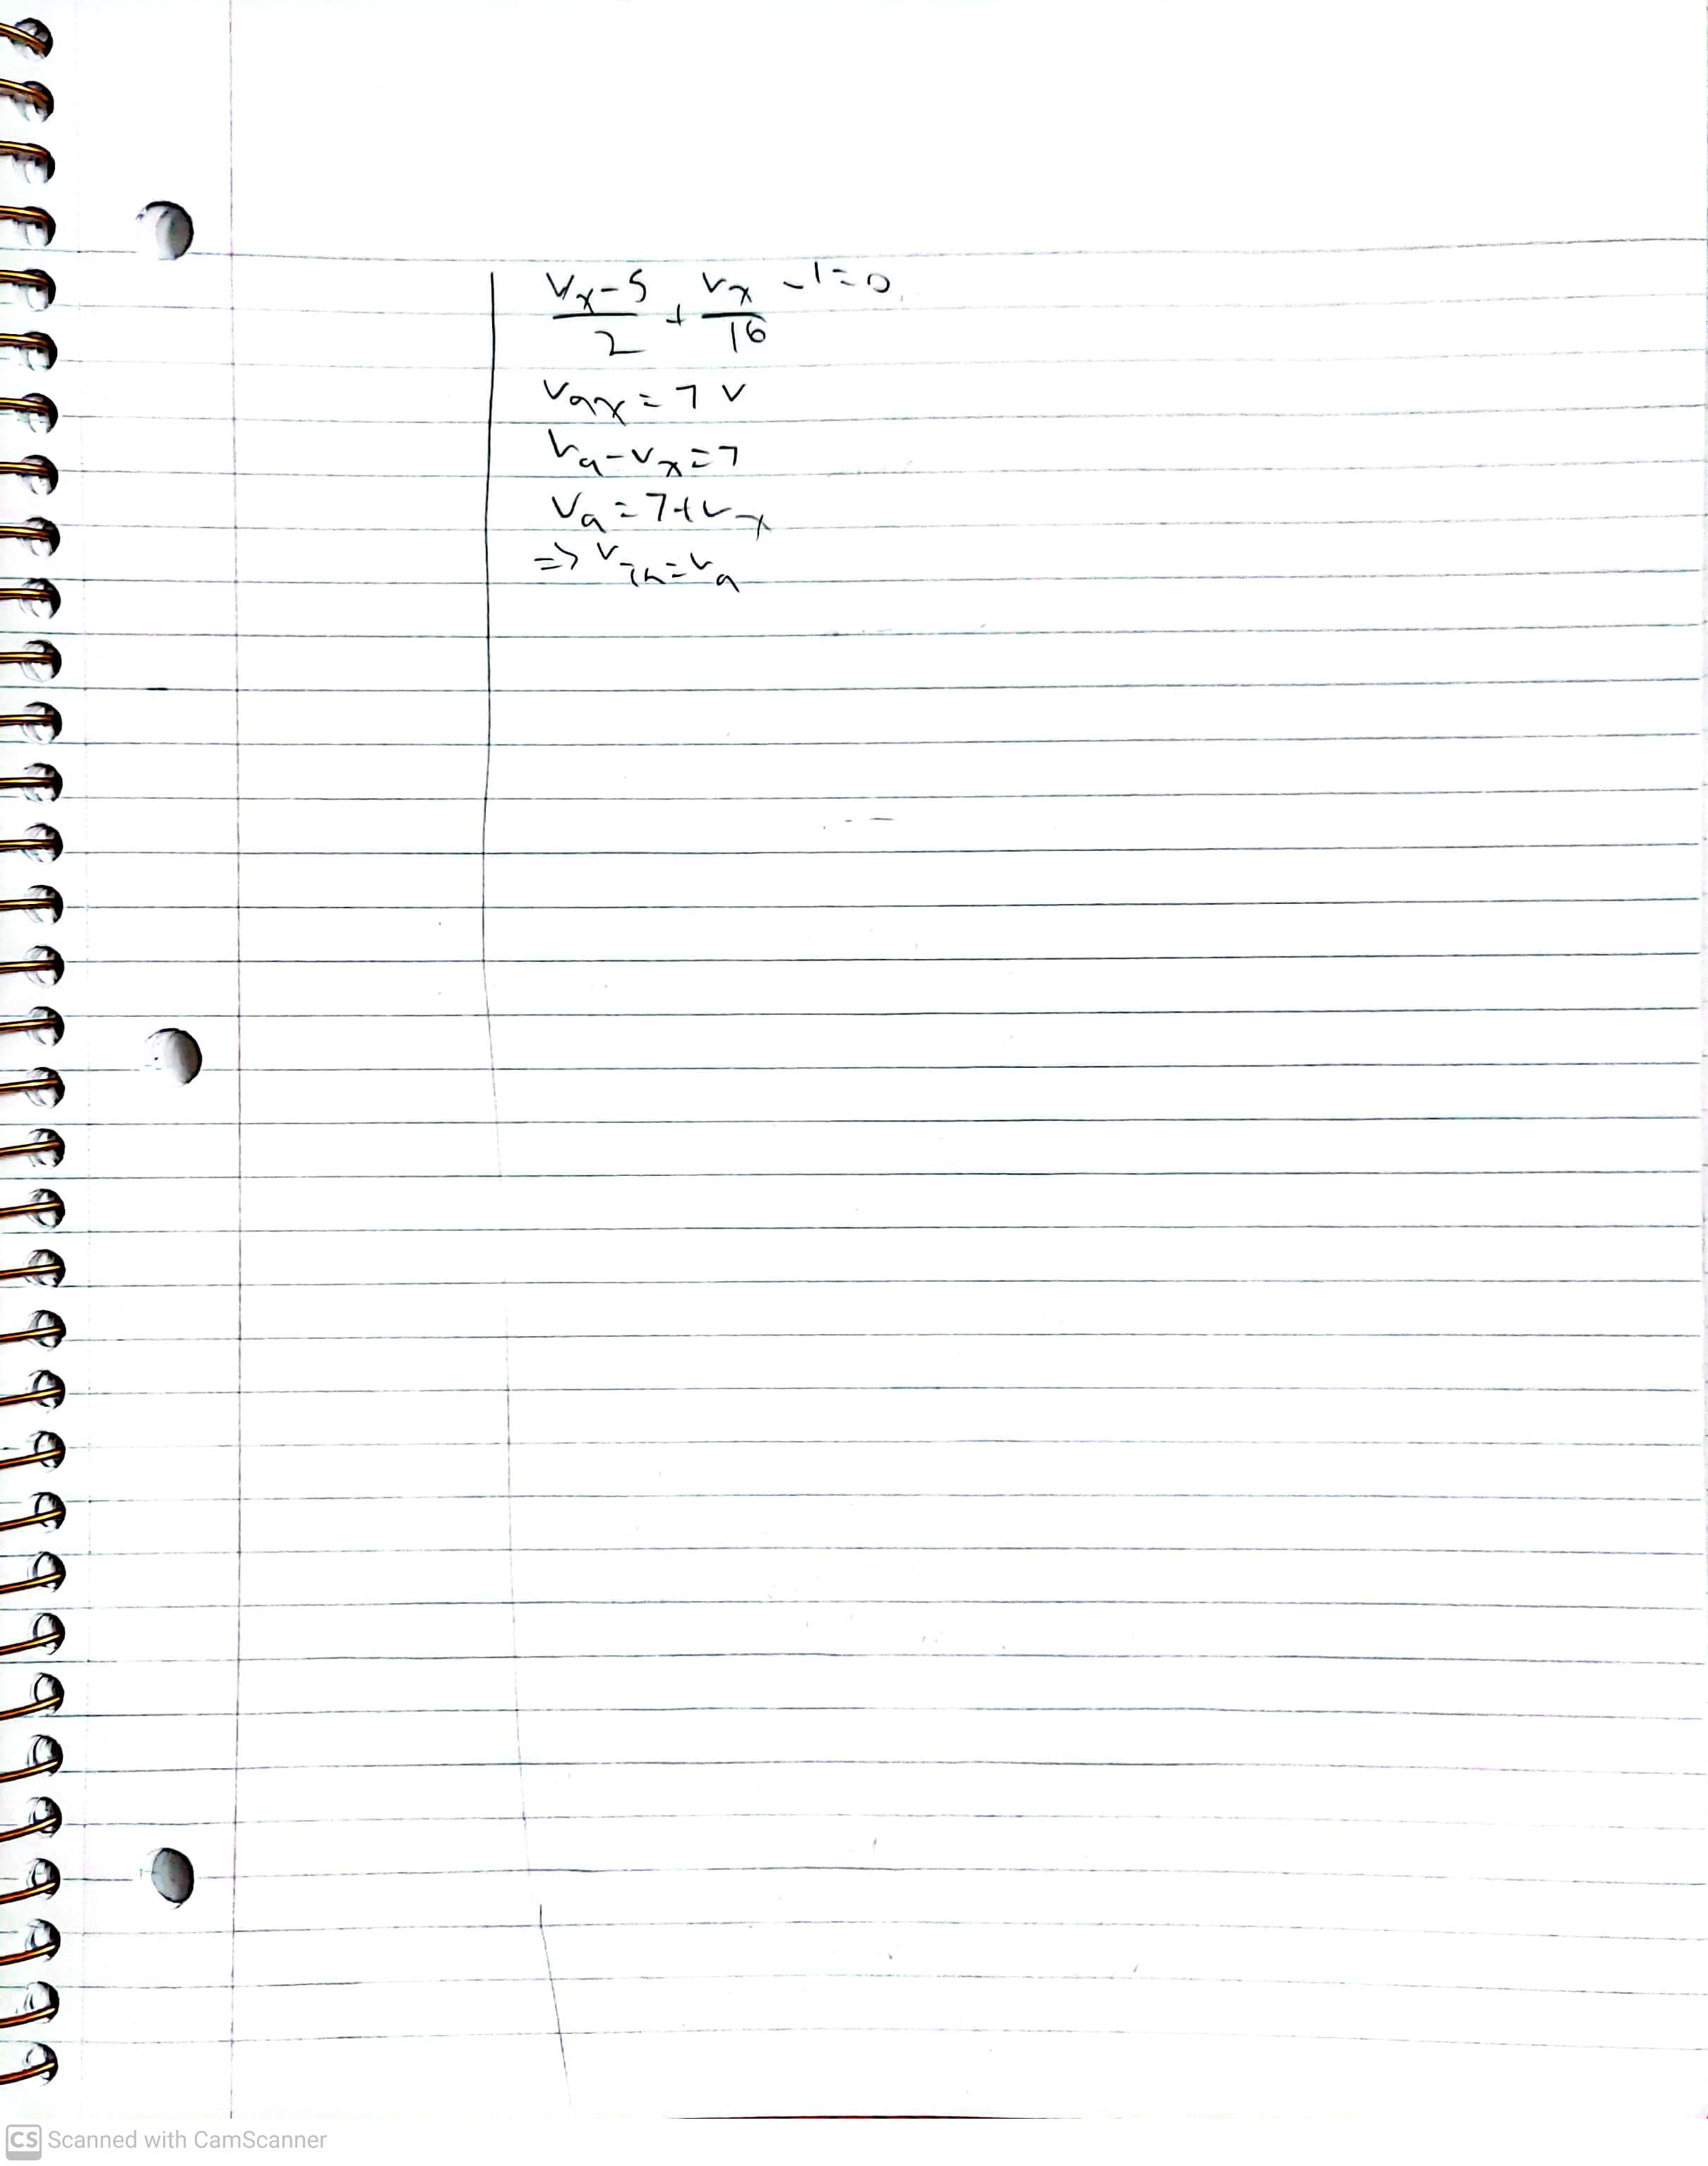 (Vx-5)/2 + Vx/16 - 1 = 0
Vax = 7 V
Va - Vx = 7
Va = 7 + Vx
=> VTh = Va
CS Scanned with CamScanner